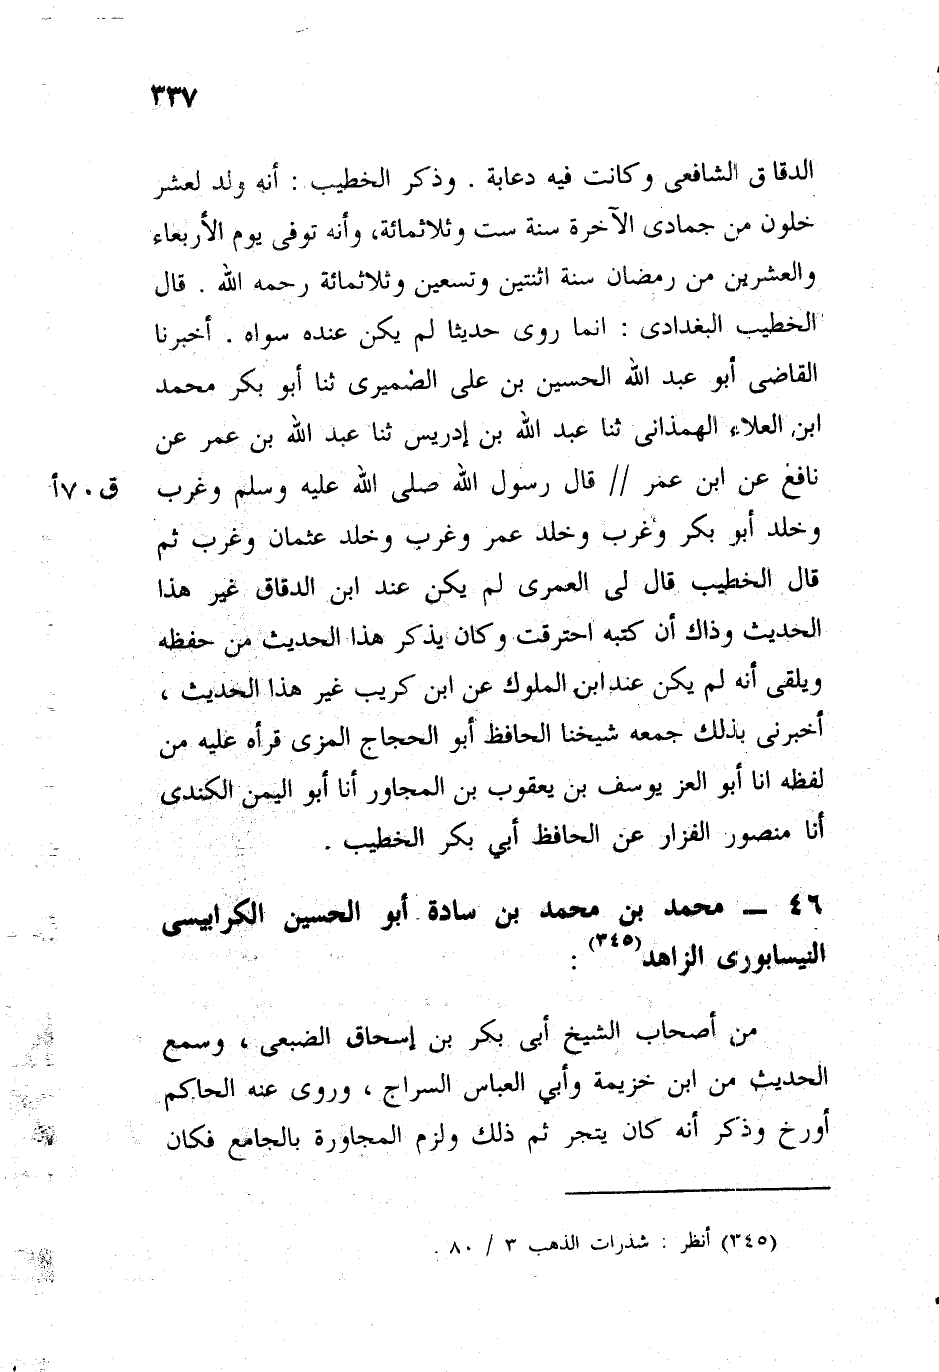 ٣٣٧
الدقاق الشافعى وكانت فيه دعابة . وذكر الخطيب : أنه ولد لعشر
خلون من جمادى الآخرة سنة ست وثلاثمائة، وأنه توفى يوم الأربعاء
والعشرين من رمضان سنة اثنتين وتسعين وثلاثمائة رحمه الله . قال
الخطيب البغدادى : انما روى حديثا لم يكن عنده سواه . أخبرنا
القاضى أبو عبد الله الحسين بن على الصميرى ثنا أبو بكر محمد
ابن العلاء الهمذانى ثنا عبد الله بن إدريس ثنا عبد الله بن عمر عن
نافع عن ابن عمر // قال رسول الله صلى الله عليه وسلم وغرب ق٧٠أ
وخلد أبو بكر وغرب وخلد عمر وغرب وخلد عثمان وغرب ثم
قال الخطيب قال لى العمرى لم يكن عند ابن الدقاق غير هذا
الحديث وذاك أن كتبه احترقت وكان يذكر هذا الحديث من حفظه
ويلقى أنه لم يكن عند ابن الملوك عن ابن كريب غير هذا الحديث ،
أخبرنى بذلك جمعه شيخنا الحافظ أبو الحجاج المزى قرأه عليه من
لفظه انا أبو العز يوسف بن يعقوب بن المجاور أنا أبو اليمن الكندى
أنا منصور الفزار عن الحافظ أبي بكر الخطيب .
٤٦ ــ محمد بن محمد بن سادة أبو الحسين الكرابيسى
النيسابورى الزاهد(٣٤٥) :
من أصحاب الشيخ أبى بكر بن إسحاق الضبعى ، وسمع
الحديث من ابن خزيمة وأبي العباس السراج ، وروى عنه الحاكم
أورخ وذكر أنه كان يتجر ثم ذلك ولزم المجاورة بالجامع فكان
(٣٤٥) أنظر : شذرات الذهب ٣ / ٨٠ .